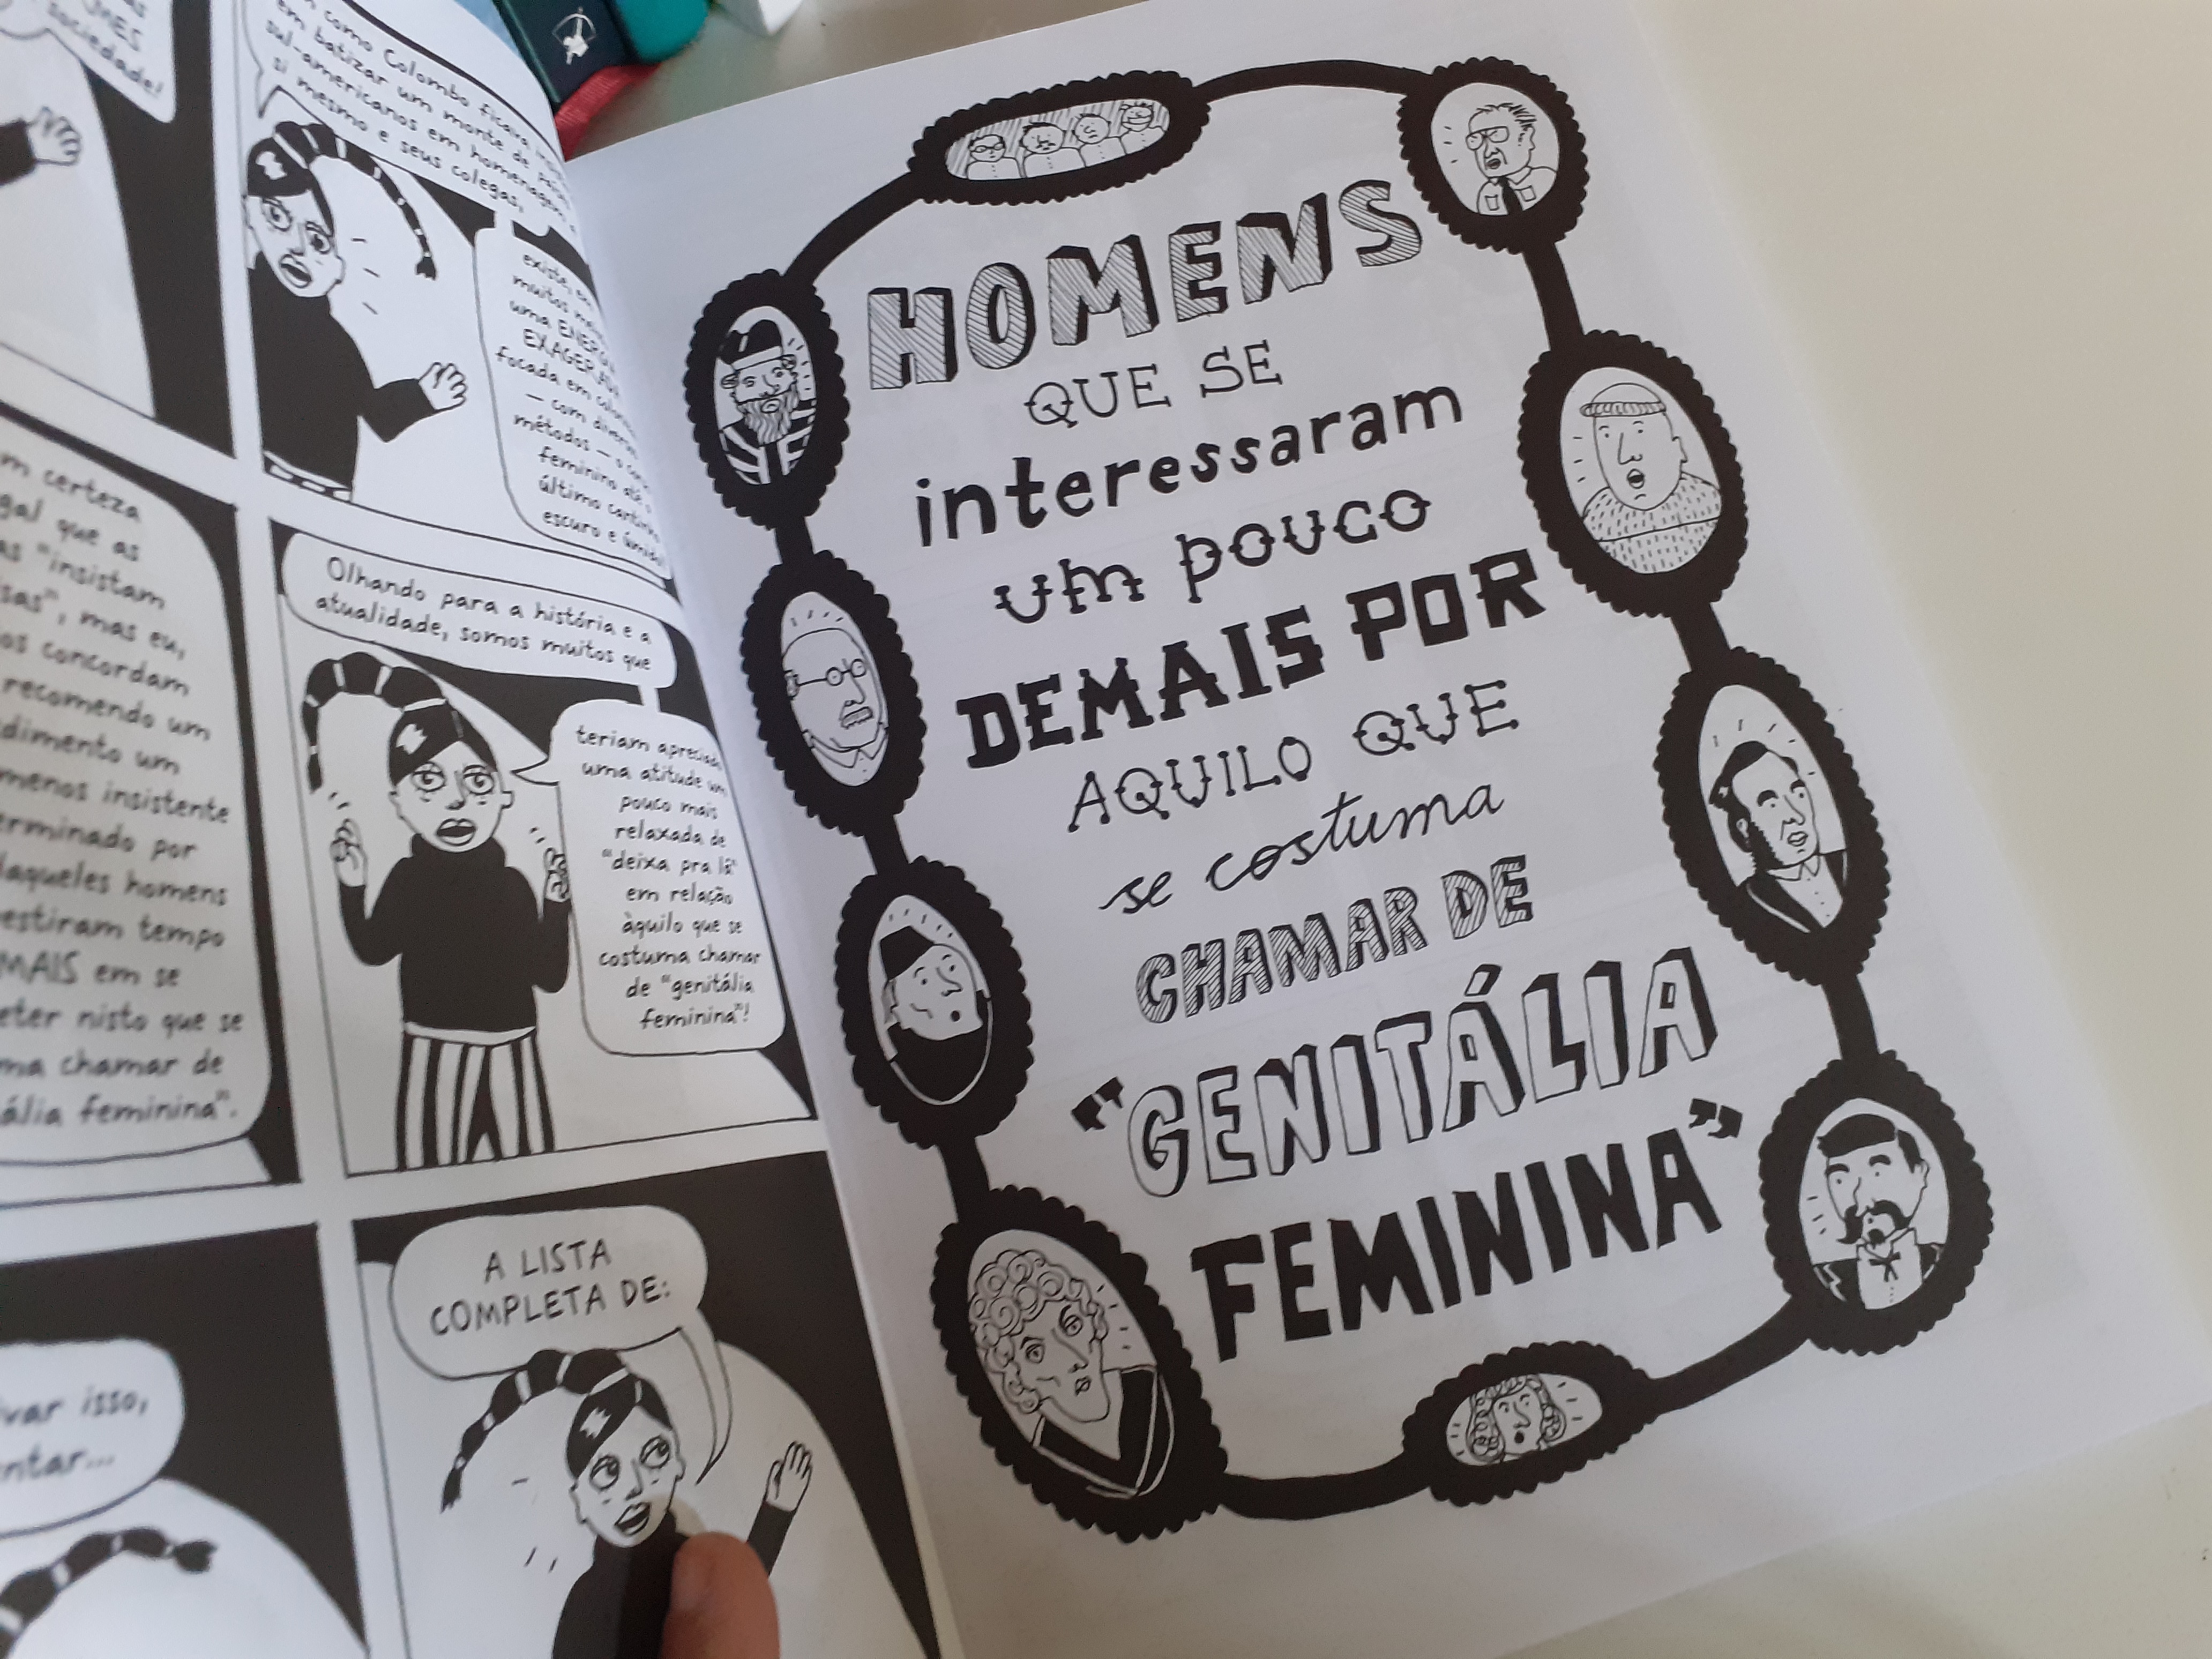 MES
sociedade!
como Colombo ficaria
em batizar um monte de
sul-americanos em homenagem a
si mesmo e seus colegas,
existe, em
muitos
uma
EXAGERADA
focada em
— com
métodos — o
feminino até o
último cantinho
escuro e úmido!
m certeza
gal que as
as "insistam
sas", mas eu,
os concordam
recomendo um
dimento um
menos insistente
erminado por
daqueles homens
estiram tempo
MAIS em se
eter nisto que se
ma chamar de
ália feminina".
Olhando para a história e a
atualidade, somos muitos que
teriam apreciado
uma atitude um
pouco mais
relaxada de
"deixa pra lá"
em relação
àquilo que se
costuma chamar
de "genitália
feminina"!
var isso,
ntar...
A LISTA
COMPLETA DE:
HOMENS
QUE SE
interessaram
um pouco
DEMAIS POR
AQUILO QUE
se costuma
CHAMAR DE
"GENITÁLIA
FEMININA"